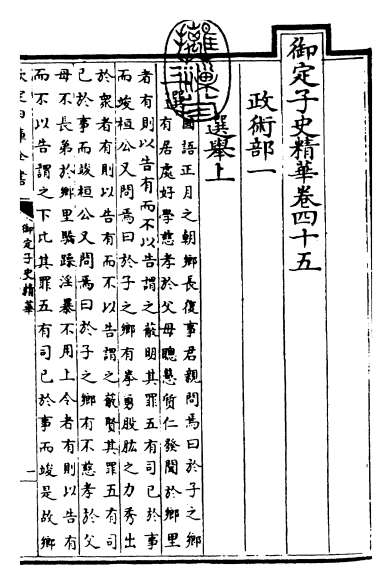 御定子史精華卷四十五
政術部一
選舉上
選
國語正月之朝鄉長復事君親問焉曰於子之鄉
有居處好學慈孝於父母聰慧質仁發聞於鄉里
者有則以告有而不以告謂之蔽明其罪五有司已於事
而竣桓公又問焉曰於子之鄉有拳勇股肱之力秀出
於衆者有則以告有而不以告謂之蔽賢其罪五有司
已於事而竣桓公又問焉曰於子之鄉有不慈孝於父
母不長弟於鄉里驕躁淫暴不用上令者有則以告有
而不以告謂之下比其罪五有司已於事而竣是故鄉
定四庫全書
御定子史精華
一